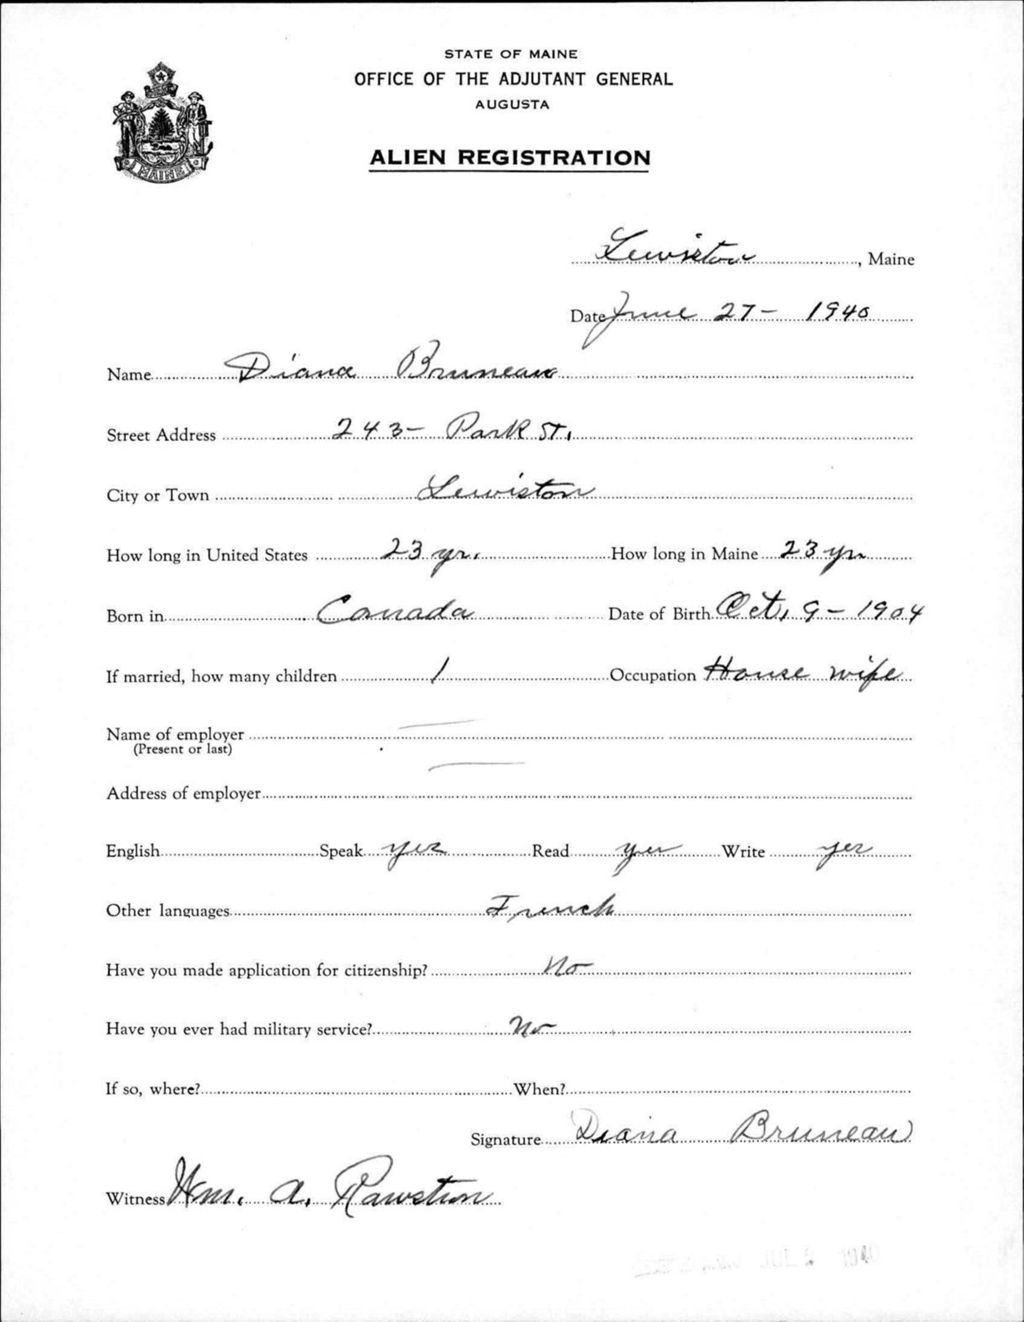 STATE OF MAINE
OFFICE OF THE ADJUTANT GENERAL
AUGUSTA
ALIEN REGISTRATION
MAINE
Lewiston, Maine
Date June 27 - 1940
Name Diana Bruneau
Street Address 243 - Park St.
City or Town Lewiston
How long in United States 23 yr. How long in Maine 23 yr
Born in Canada Date of Birth Oct, 9 - 1904
If married, how many children 1 Occupation House wife
Name of employer —
(Present or last)
Address of employer —
English Speak yes Read yes Write yes
Other languages French
Have you made application for citizenship? No
Have you ever had military service? No
If so, where? When?
Signature Diana Bruneau
Witness Wm. A. Rawstron
JUL 1940